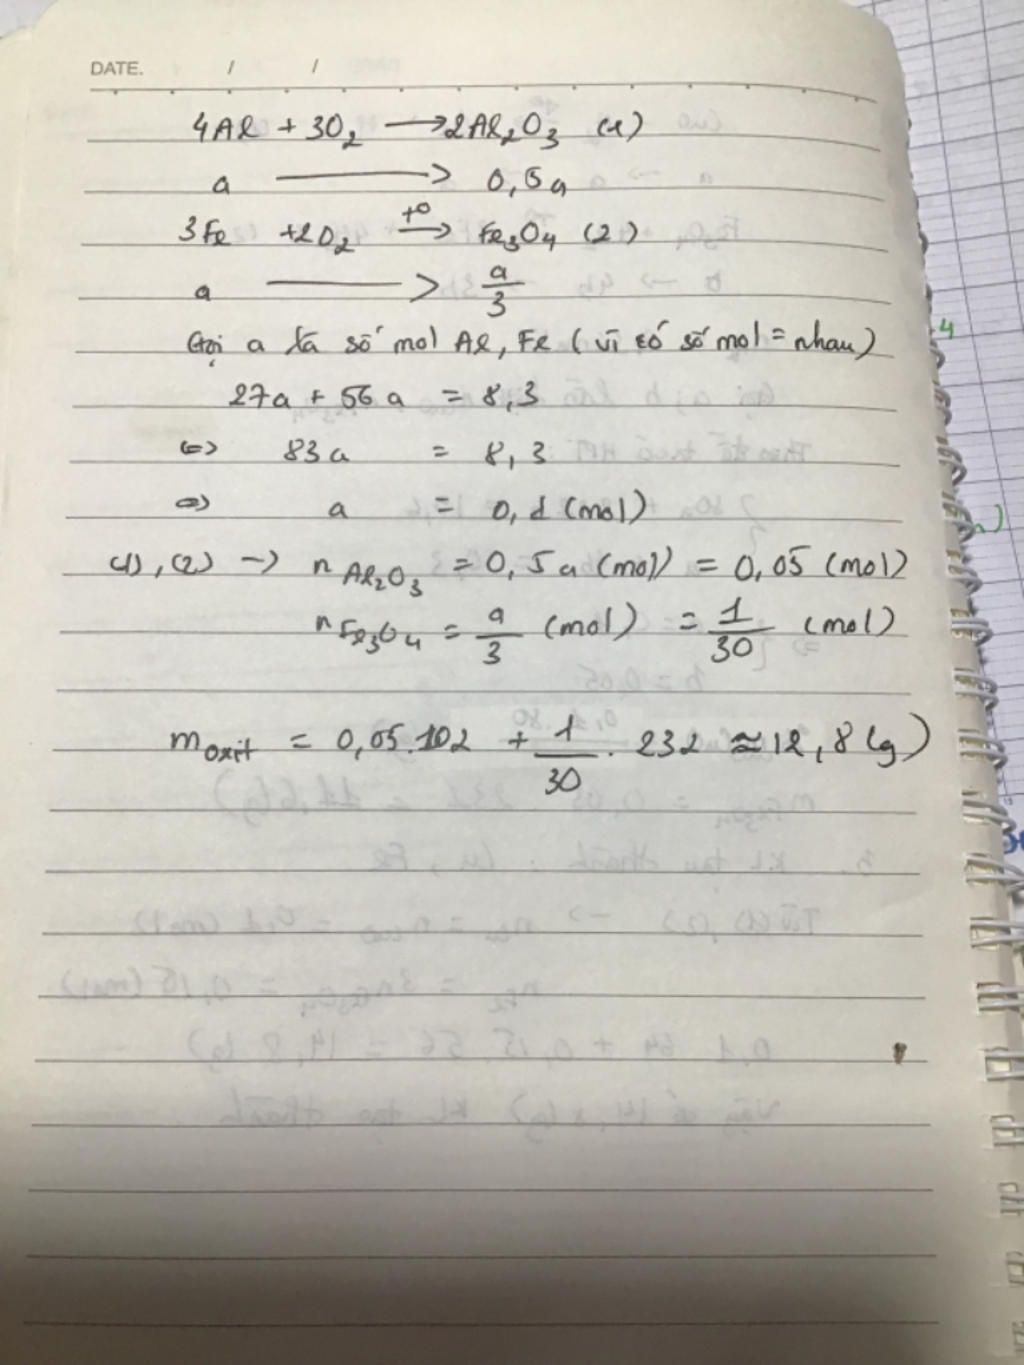 DATE. / /
4Al + 3O2 → 2Al2O3 (1)
a → 0,5a
3Fe + 2O2 →t° Fe3O4 (2)
a → a/3
Gọi a là số mol Al, Fe (vì có số mol = nhau)
27a + 56a = 8,3
<=> 83a = 8,3
<=> a = 0,1 (mol)
(1), (2) → nAl2O3 = 0,5a (mol) = 0,05 (mol)
nFe3O4 = a/3 (mol) = 1/30 (mol)
m oxit = 0,05.102 + 1/30 . 232 ≈ 12,8 (g)